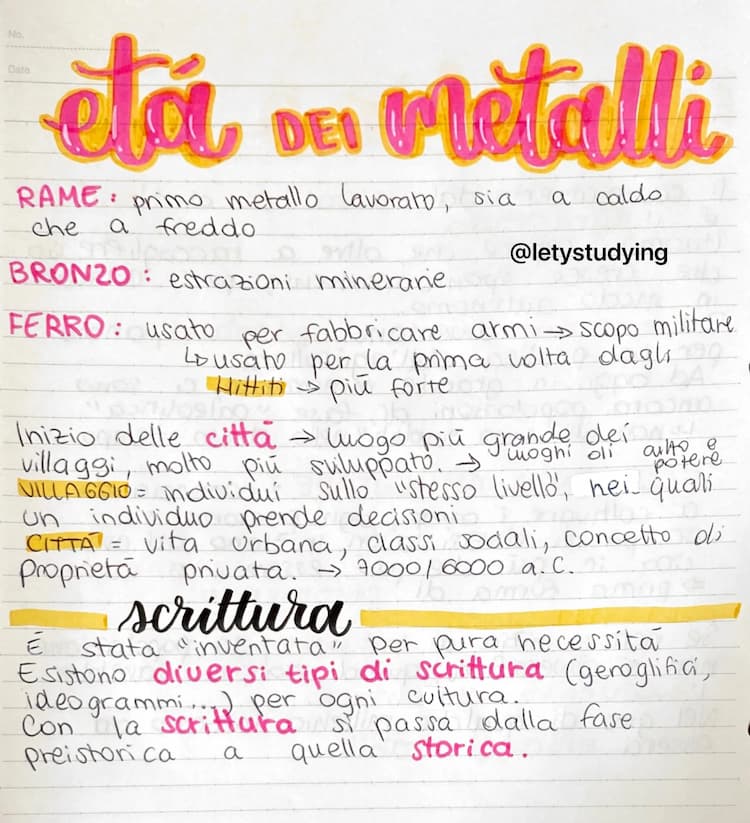 No.
Date
età DEI metalli
RAME: primo metallo lavorato, sia a caldo
che a freddo
@letystudying
BRONZO: estrazioni minerarie
FERRO: usato per fabbricare armi → scopo militare
↳ usato per la prima volta dagli
Hittiti → più forte
Inizio delle città → luogo più grande dei
villaggi, molto più sviluppato. → luoghi di culto e
potere
VILLAGGIO = individui sullo "stesso livello", nei quali
un individuo prende decisioni
CITTÀ = vita urbana, classi sociali, concetto di
proprietà privata. → 7000/6000 a.C.
scrittura
È stata "inventata" per pura necessità
Esistono diversi tipi di scrittura (geroglifici,
ideogrammi...) per ogni cultura.
Con la scrittura si passa dalla fase
preistorica a quella storica.